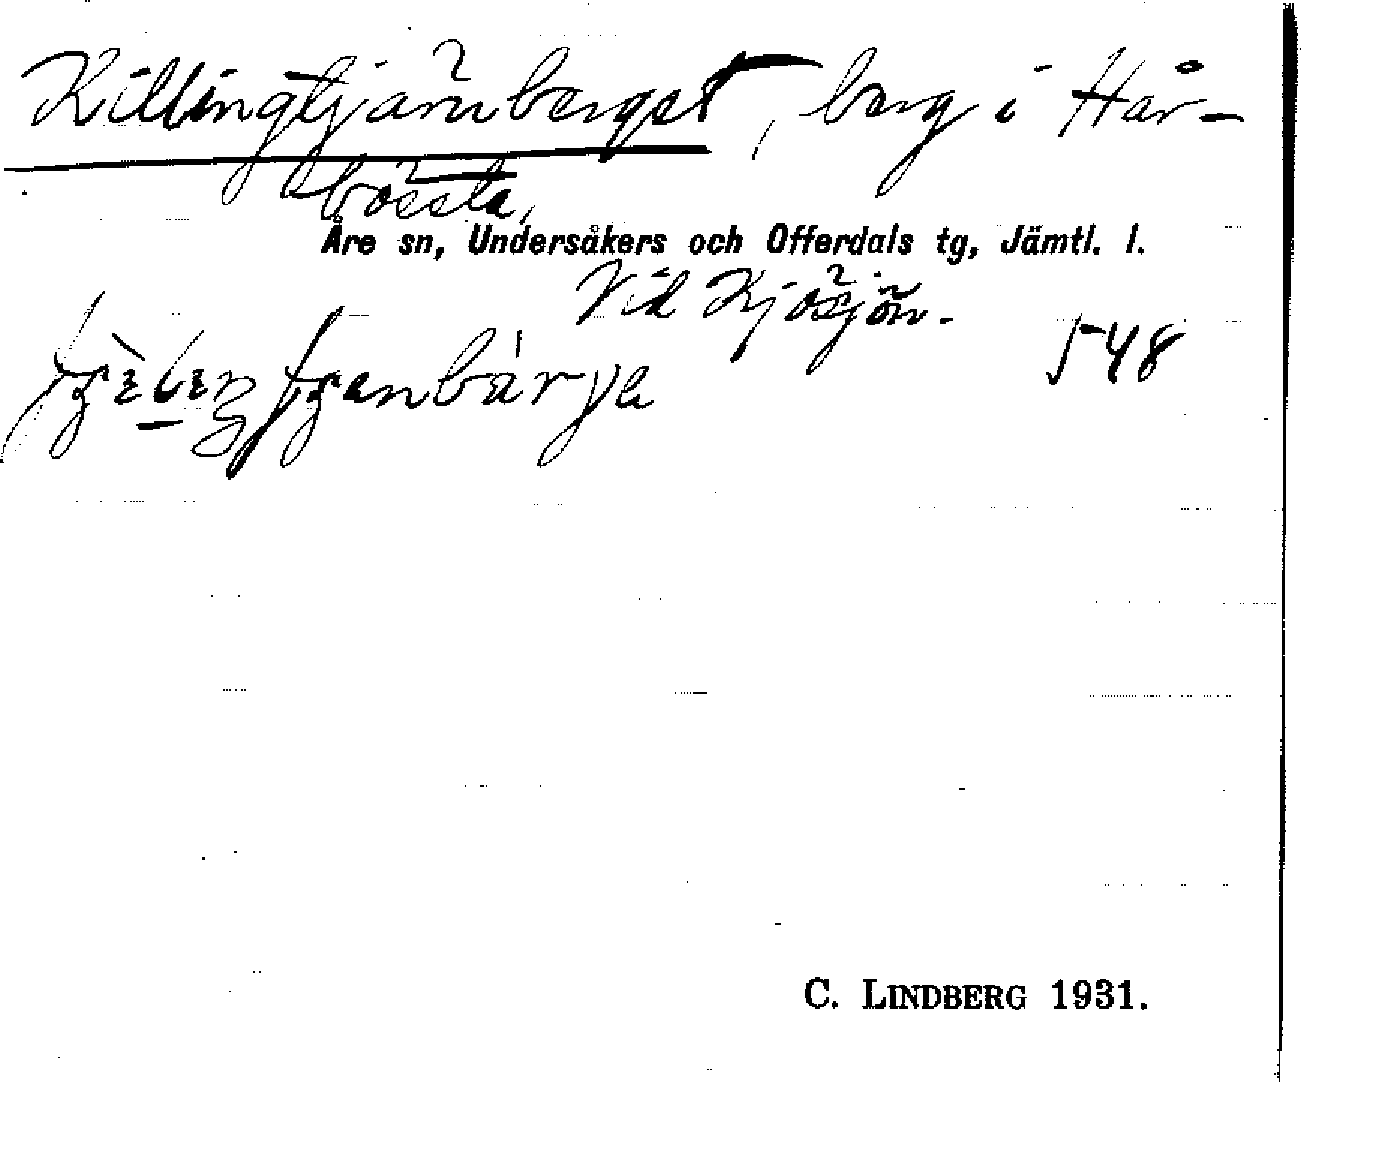 Killingtjärnberget, berg i Hår-
bössta,
Åre sn, Undersåkers och Offerdals tg, Jämtl. l.
Vid Kjösjön.
548
C. LINDBERG 1931.